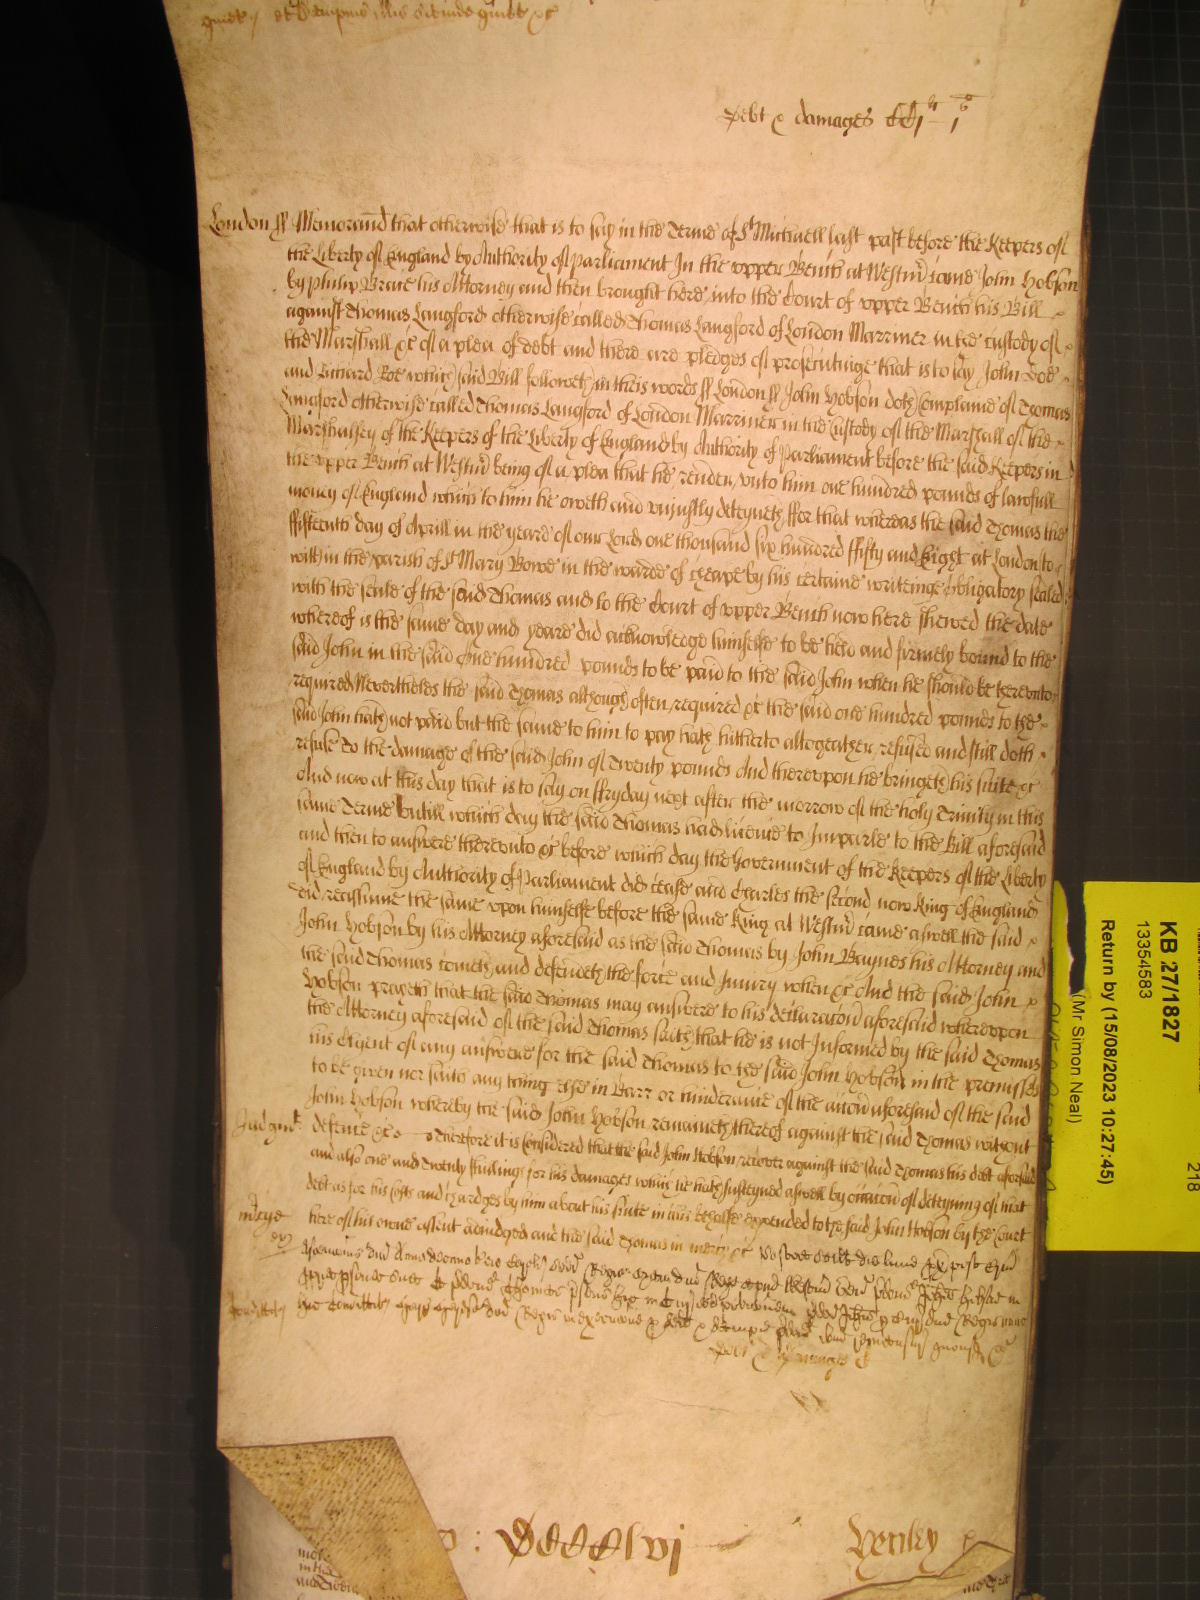 Debt & damages CCj li js
London ss Memorand that otherwise that is to say in the Terme of St Michaell last past before the Keepers of
the Liberty of England by Authority of Parliament In the upper Bench at Westmr came John Hobson
by Philip Brace his Attorney and then brought here into the Court of upper Bench his Bill
against Thomas Langford otherwise called Thomas Langford of London Marriner in the custody of
the Marshall &c of a plea of debt and there are pledges of prosecutinge that is to say John Doe
and Richard Roe which said Bill followeth in theis words ss London ss John Hobson doth Complaine of Thomas
Langford otherwise called Thomas Langford of London Marriner in the Custody of the Marshall of the
Marshalsey of the Keepers of the Liberty of England by Authority of Parliament before the said Keepers in
the upper Bench at Westmr being of a plea that he render unto him one hundred pounds of lawfull
money of England which to him he oweth and unjustly deteyneth ffor that whereas the said Thomas the
ffifteenth day of Aprill in the yeare of our Lord one thousand six hundred ffifty and Eight at London to
witt in the parish of St Mary Bowe in the warde of cheape by his certaine writeinge obligatory sealed
with the seale of the said Thomas and to the Court of upper Bench now here shewed the date
whereof is the same day and yeare did acknowledge himselfe to be held and firmely bound to the
said John in the said One hundred pounds to be paid to the said John when he should be thereunto
required Nevertheles the said Thomas although often required &c the said one hundred pounds to the
said John hath not paid but the same to him to pay hath hitherto altogeather refused and still doth
refuse To the damage of the said John of Twenty pounds And thereupon he bringeth his suite &c
And now at this day that is to say on ffryday next after the morrow of the holy Trinity in this
same Terme untill which day the said Thomas had licence to Imparle to the Bill aforesaid
and then to answere thereunto &c before which day the Government of the Keepers of the Liberty
of England by Authority of Parliament did cease and Charles the second now King of England
did reassume the same upon himselfe before the same King at Westmr came aswell the said
John Hobson by his Attorney aforesaid as the said Thomas by John Baynes his Attorney and
the said Thomas cometh and defendeth the force and Injury when &c And the said John
Hobson prayeth that the said Thomas may answere to his declaracon aforesaid whereupon
the Attorney aforesaid of the said Thomas saith that he is not Informed by the said Thomas
his Clyent of any answere for the said Thomas to the said John Hobson in the premisses
to be given nor saith any thing else in Barr or hinderance of the accon aforesaid of the said
John Hobson whereby the said John Hobson remaineth thereof against the said Thomas without
Judgmt defence &c Therefore it is Considered that the said John Hobson recover against the said Thomas his debt aforesaid
and also one and Twenty shillings for his damages which he hath susteyned aswell by occasion of deteyning of that
debt as for his costs and chardges by him about his suite in this behalfe expended to the said John Hobson by the Court
mcye here of his owne assent adjudged and the said Thomas in mercy &c
Debt & damages
CCCClvj
Henley
KB 27/1827
13354583
Return by (15/08/2023 10:27:45)
(Mr Simon Neal)
218